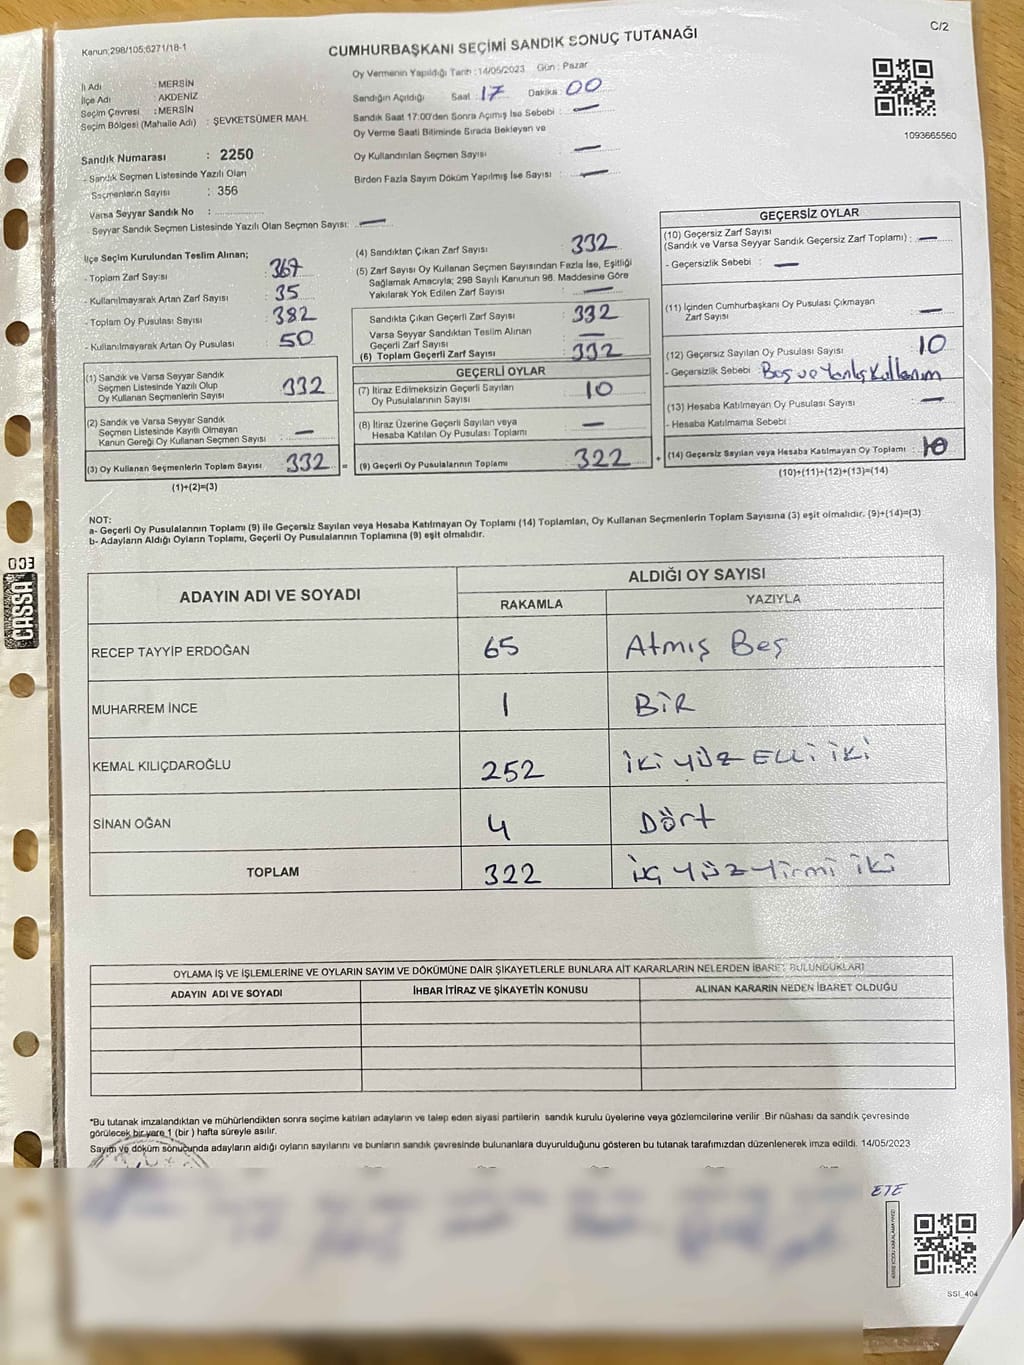 Kanun;298/105;6271/18-1
CUMHURBAŞKANI SEÇİMİ SANDIK SONUÇ TUTANAĞI
C/2
İl Adı : MERSİN
İlçe Adı : AKDENİZ
Seçim Çevresi : MERSİN
Seçim Bölgesi (Mahalle Adı) : ŞEVKETSÜMER MAH.
Sandık Numarası : 2250
- Sandık Seçmen Listesinde Yazılı Olan
Seçmenlerin Sayısı : 356
Varsa Seyyar Sandık No :
Seyyar Sandık Seçmen Listesinde Yazılı Olan Seçmen Sayısı: —
Oy Vermenin Yapıldığı Tarih :14/05/2023 Gün : Pazar
Sandığın Açıldığı Saat : 17 Dakika : 00
Sandık Saat 17:00'den Sonra Açımış İse Sebebi : —
Oy Verme Saati Bitiminde Sırada Bekleyen ve
Oy Kullandırılan Seçmen Sayısı : —
Birden Fazla Sayım Döküm Yapılmış İse Sayısı : —
1093665560
İlçe Seçim Kurulundan Teslim Alınan;
- Toplam Zarf Sayısı : 367
- Kullanılmayarak Artan Zarf Sayısı : 35
- Toplam Oy Pusulası Sayısı : 382
- Kullanılmayarak Artan Oy Pusulası : 50
(1) Sandık ve Varsa Seyyar Sandık
Seçmen Listesinde Yazılı Olup
Oy Kullanan Seçmenlerin Sayısı : 332
(2) Sandık ve Varsa Seyyar Sandık
Seçmen Listesinde Kayıtlı Olmayan
Kanun Gereği Oy Kullanan Seçmen Sayısı : —
(3) Oy Kullanan Seçmenlerin Toplam Sayısı : 332 =
(1)+(2)=(3)
(4) Sandıktan Çıkan Zarf Sayısı : 332
(5) Zarf Sayısı Oy Kullanan Seçmen Sayısından Fazla İse, Eşitliği
Sağlamak Amacıyla; 298 Sayılı Kanunun 98. Maddesine Göre
Yakılarak Yok Edilen Zarf Sayısı : —
Sandıkta Çıkan Geçerli Zarf Sayısı : 332
Varsa Seyyar Sandıktan Teslim Alınan
Geçerli Zarf Sayısı : —
(6) Toplam Geçerli Zarf Sayısı : 332
GEÇERLİ OYLAR
(7) İtiraz Edilmeksizin Geçerli Sayılan
Oy Pusulalarının Sayısı : 10
(8) İtiraz Üzerine Geçerli Sayılan veya
Hesaba Katılan Oy Pusulası Toplamı : —
(9) Geçerli Oy Pusulalarının Toplamı : 322 +
GEÇERSİZ OYLAR
(10) Geçersiz Zarf Sayısı
(Sandık ve Varsa Seyyar Sandık Geçersiz Zarf Toplamı) : —
- Geçersizlik Sebebi : —
(11) İçinden Cumhurbaşkanı Oy Pusulası Çıkmayan
Zarf Sayısı : —
(12) Geçersiz Sayılan Oy Pusulası Sayısı : 10
- Geçersizlik Sebebi : Boş ve Yanlış Kullanım
(13) Hesaba Katılmayan Oy Pusulası Sayısı : —
- Hesaba Katılmama Sebebi :
(14) Geçersiz Sayılan veya Hesaba Katılmayan Oy Toplamı : 10
(10)+(11)+(12)+(13)=(14)
NOT:
a- Geçerli Oy Pusulalarının Toplamı (9) ile Geçersiz Sayılan veya Hesaba Katılmayan Oy Toplamı (14) Toplamları, Oy Kullanan Seçmenlerin Toplam Sayısına (3) eşit olmalıdır. (9)+(14)=(3)
b- Adayların Aldığı Oyların Toplamı, Geçerli Oy Pusulalarının Toplamına (9) eşit olmalıdır.
ADAYIN ADI VE SOYADI
ALDIĞI OY SAYISI
RAKAMLA YAZIYLA
RECEP TAYYİP ERDOĞAN 65 Atmış Beş
MUHARREM İNCE 1 BİR
KEMAL KILIÇDAROĞLU 252 İki YÜZ ELLİ İKİ
SİNAN OĞAN 4 Dört
TOPLAM 322 üç YÜZ Yirmi iki
OYLAMA İŞ VE İŞLEMLERİNE VE OYLARIN SAYIM VE DÖKÜMÜNE DAİR ŞİKAYETLERLE BUNLARA AİT KARARLARIN NELERDEN İBARET BULUNDUKLARI
ADAYIN ADI VE SOYADI İHBAR İTİRAZ VE ŞİKAYETİN KONUSU ALINAN KARARIN NEDEN İBARET OLDUĞU
*Bu tutanak imzalandıktan ve mühürlendikten sonra seçime katılan adayların ve talep eden siyasi partilerin sandık kurulu üyelerine veya gözlemcilerine verilir. Bir nüshası da sandık çevresinde
görülecek bir yere 1 (bir) hafta süreyle asılır.
Sayım ve döküm sonucunda adayların aldığı oyların sayılarını ve bunların sandık çevresinde bulunanlara duyurulduğunu gösteren bu tutanak tarafımızdan düzenlenerek imza edildi. 14/05/2023
ETE
SSI_404
CASSA